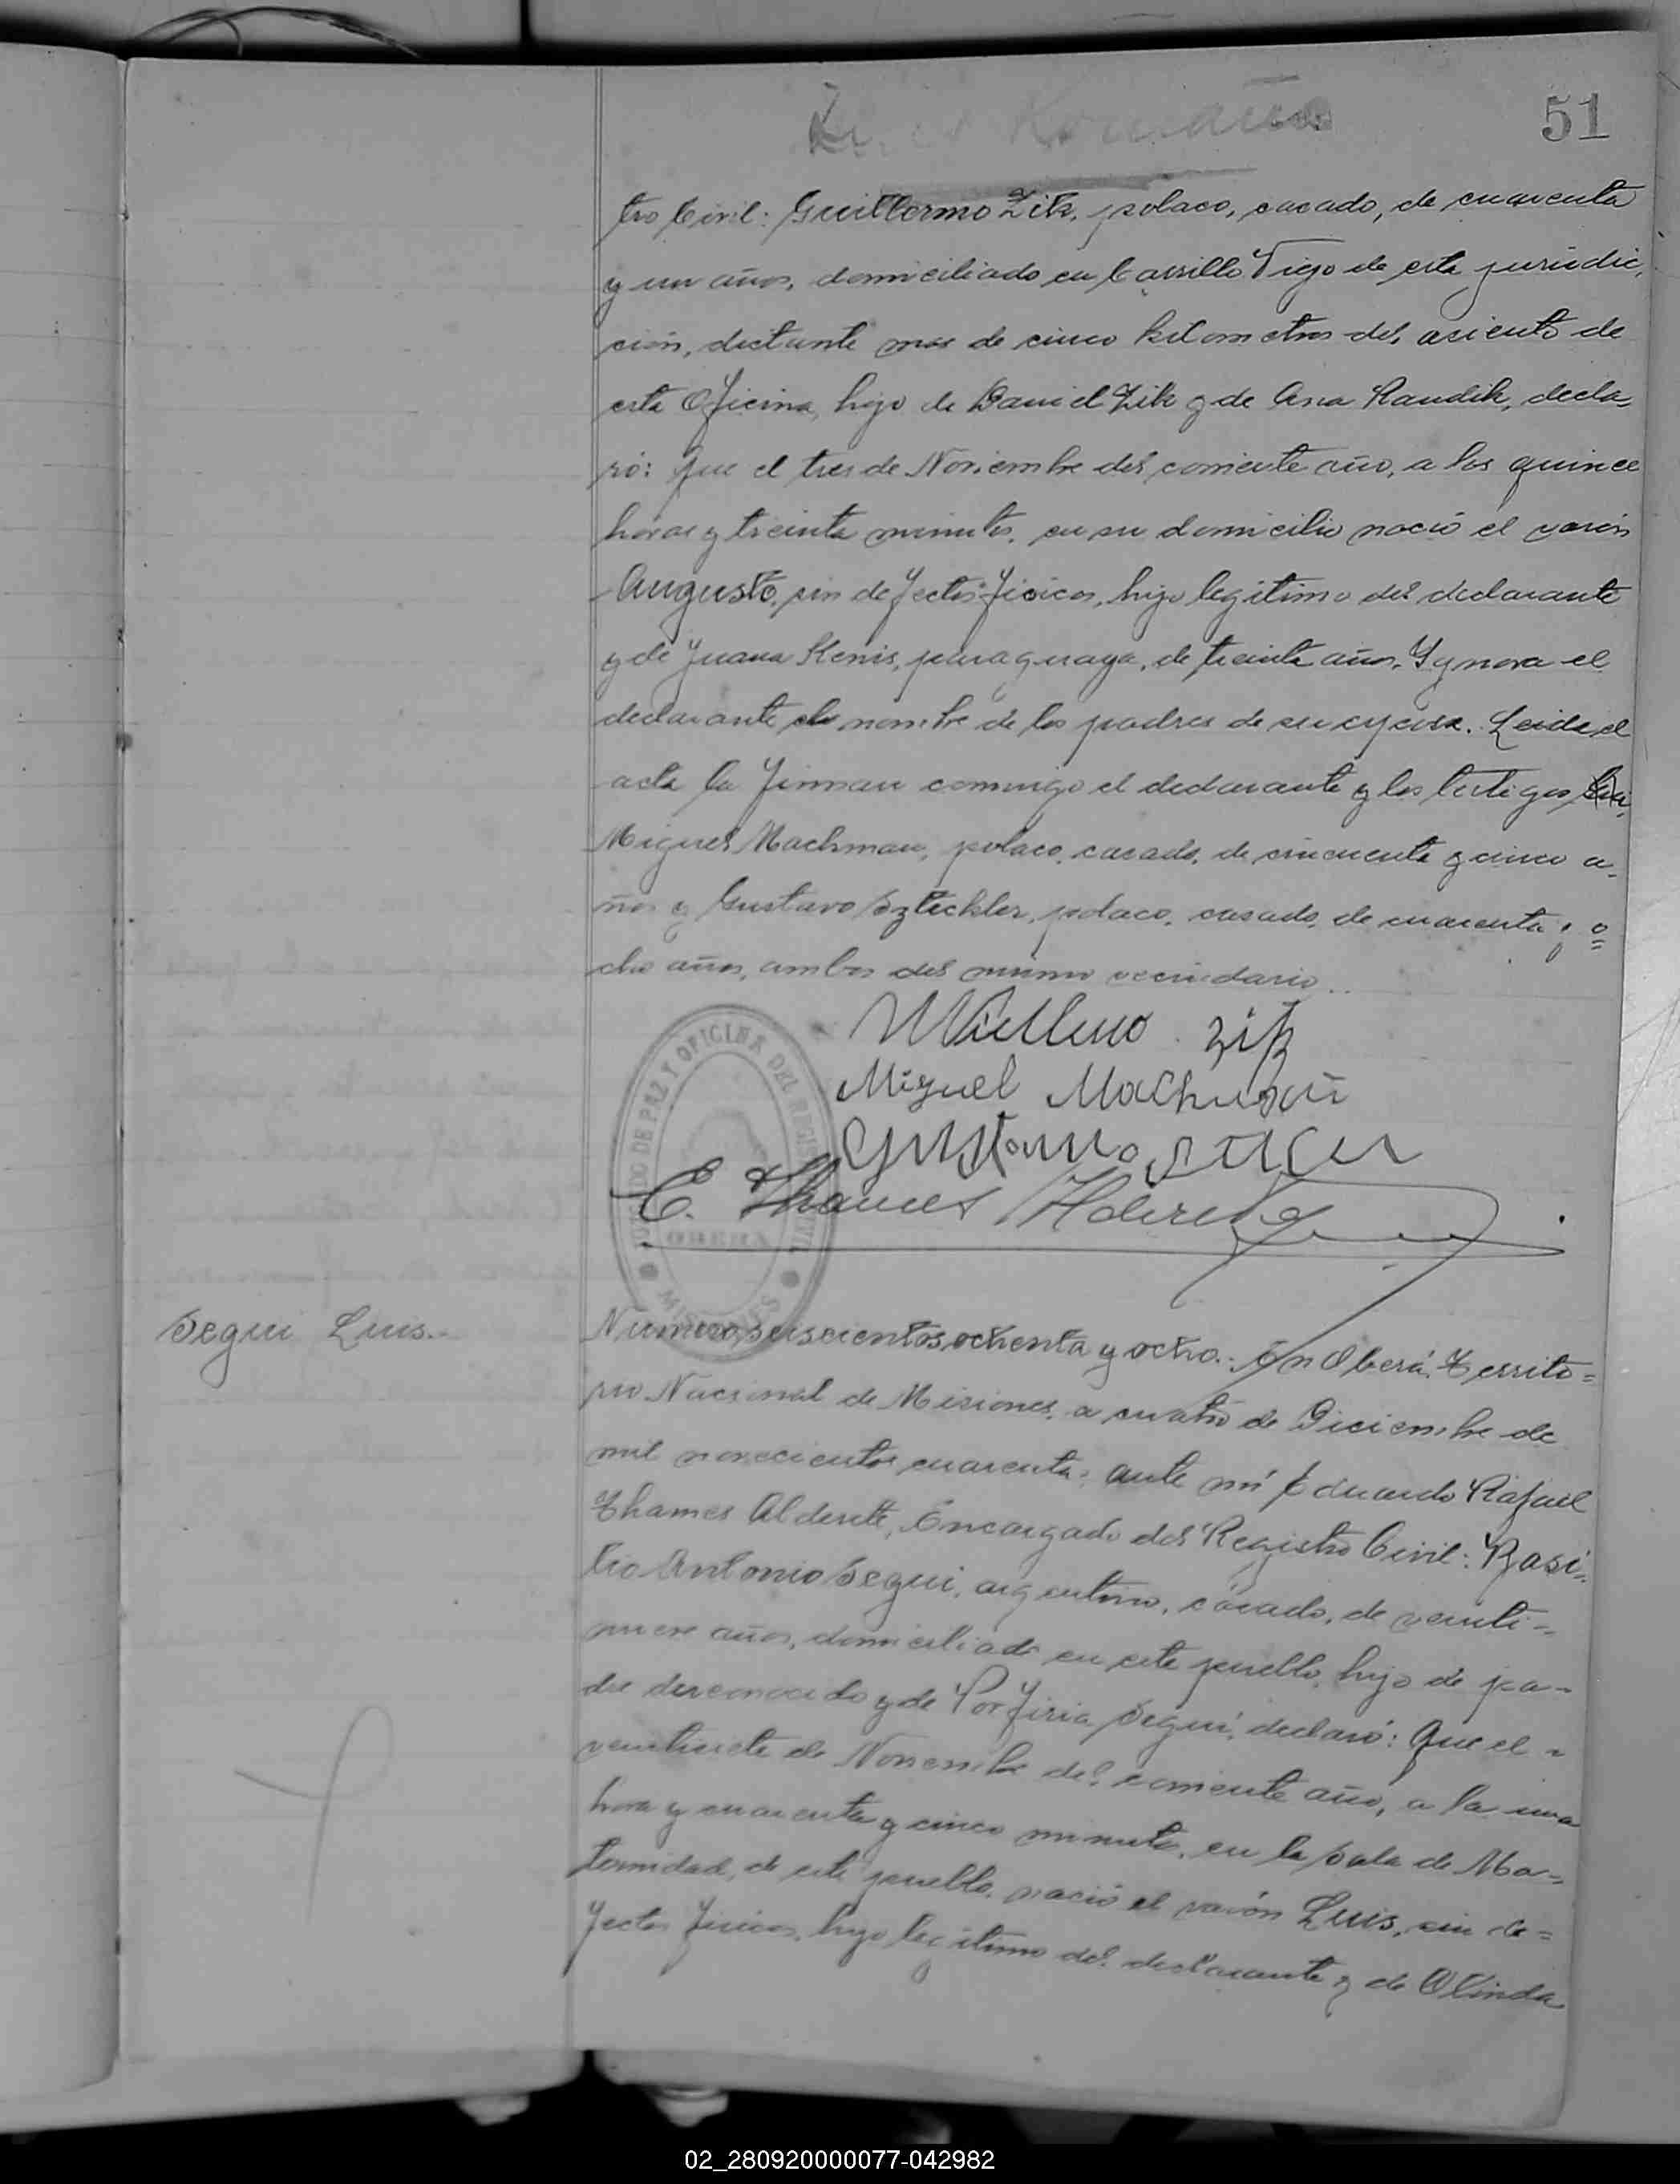 51
tro Civil: Guillermo Zik, polaco, casado, de cuarenta
y un años, domiciliado en Carrillo Viejo de esta jurisdic,
ción, distante mas de cinco kilometros del asiento de
esta Oficina, hijo de Daniel Zik y de Ana Raudik, decla,
ró: Que el tres de Noviembre del corriente año, a las quince
horas y treinta minutos, en su domicilio nació el varón
Augusto, sin defectos físicos, hijo legítimo del declarante
y de Juana Kenis, paraguaya, de treinta años. Ygnora el
declarante el nombre de los padres de su esposa. Leida el
acta la firman conmigo el declarante y los testigos
Miguel Machman, polaco, casado, de cincuenta y cinco a-
ños y Gustavo Szteckler, polaco, casado, de cuarenta y o
cho años, ambos del mismo vecindario..
Zik
Miguel Machman
Gustavo
E. Thames Alderete
JUZGADO DE PAZ Y OFICINA DEL REGISTRO CIVIL
OBERA
MISIONES
Segui Luis.-
Número, seiscientos ochenta y ocho.: En Oberá, Territo=
rio Nacional de Misiones, a cuatro de Diciembre de
mil novecientos cuarenta; ante mí Eduardo Rafael
Thames Alderete, Encargado del Registro Civil: Basi-
lio Antonio Segui, argentino, casado, de veinti-
nueve años, domiciliado en este pueblo, hijo de pa-
dre desconocido y de Porfiria Segui, declaró: Que el -
veintisiete de Noviembre del corriente año, a la una
hora y cuarenta y cinco minutos, en la Sala de Ma-
ternidad, de este pueblo, nació el varón Luis, sin de=
fectos físicos, hijo legítimo del declarante y de Olinda
02_280920000077-042982